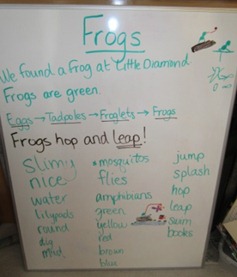 Frogs
We found a frog at Little Diamond.
Frogs are green.
Eggs → Tadpoles → Froglets → Frogs
Frogs hop and leap!
slimy
nice
water
lilypads
round
dig
mud
mosquitos
flies
amphibians
green
yellow
red
brown
blue
jump
splash
hop
leap
swim
books